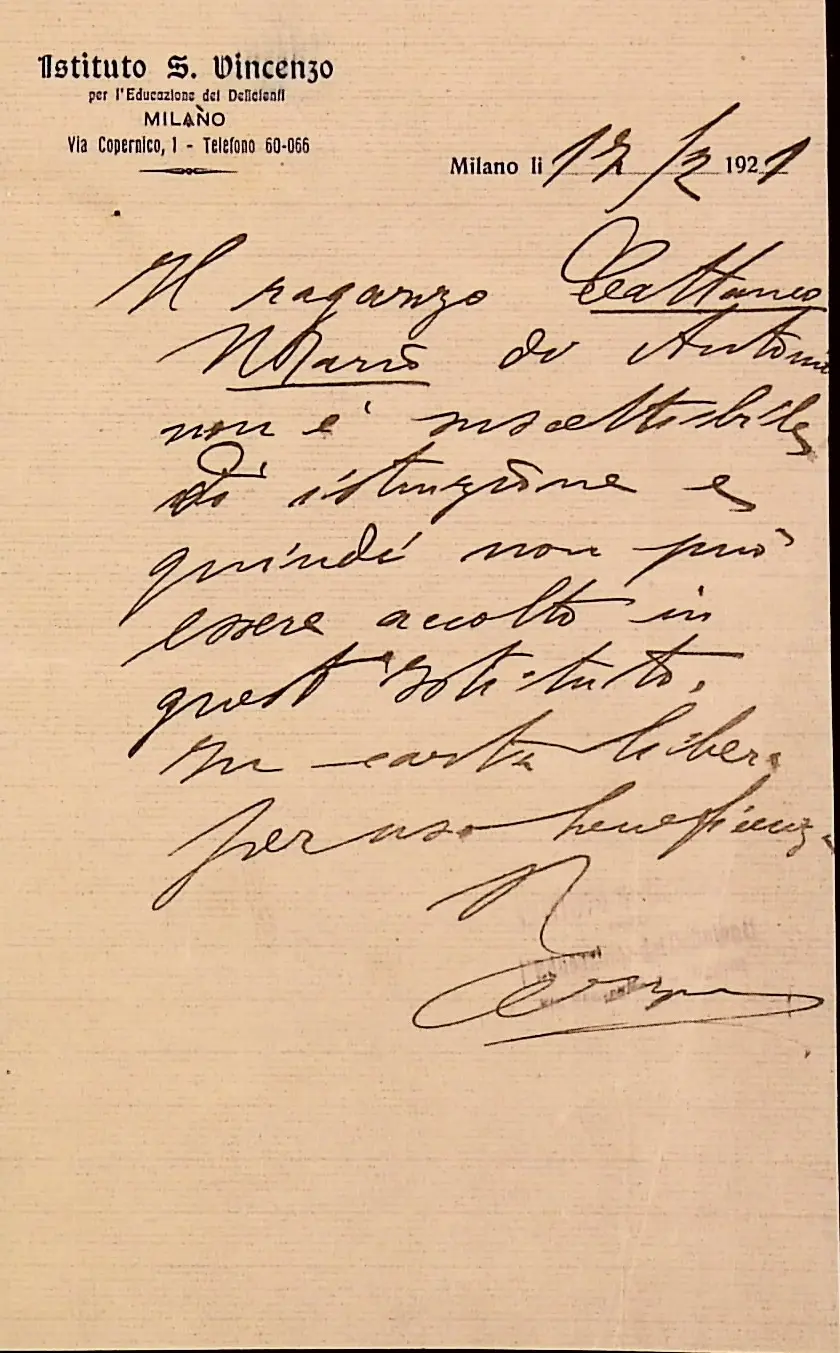 Istituto S. Vincenzo
per l'Educazione dei Deficienti
MILANO
Via Copernico, 1 - Telefono 60-066
Milano li 17/2 1921
Il ragazzo Cattaneo
Mario di Antonio
non è suscettibile
di istruzione e
quindi non può
essere accolto in
quest'Istituto.
In carta libera
per uso beneficenza